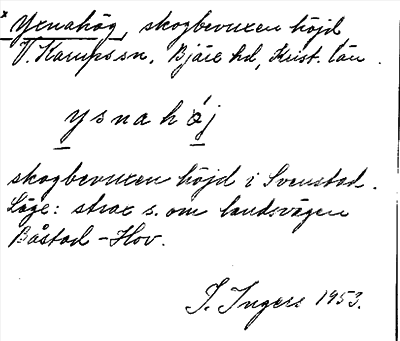 * Yxnahög, skogbevuxen höjd
V. Karups sn, Bjäre hd, Krist. län.
ysnahøj
skogbevuxen höjd i Svenstad.
Läge: strax s. om landsvägen
Båstad - Hov.
I. Ingers 1953.